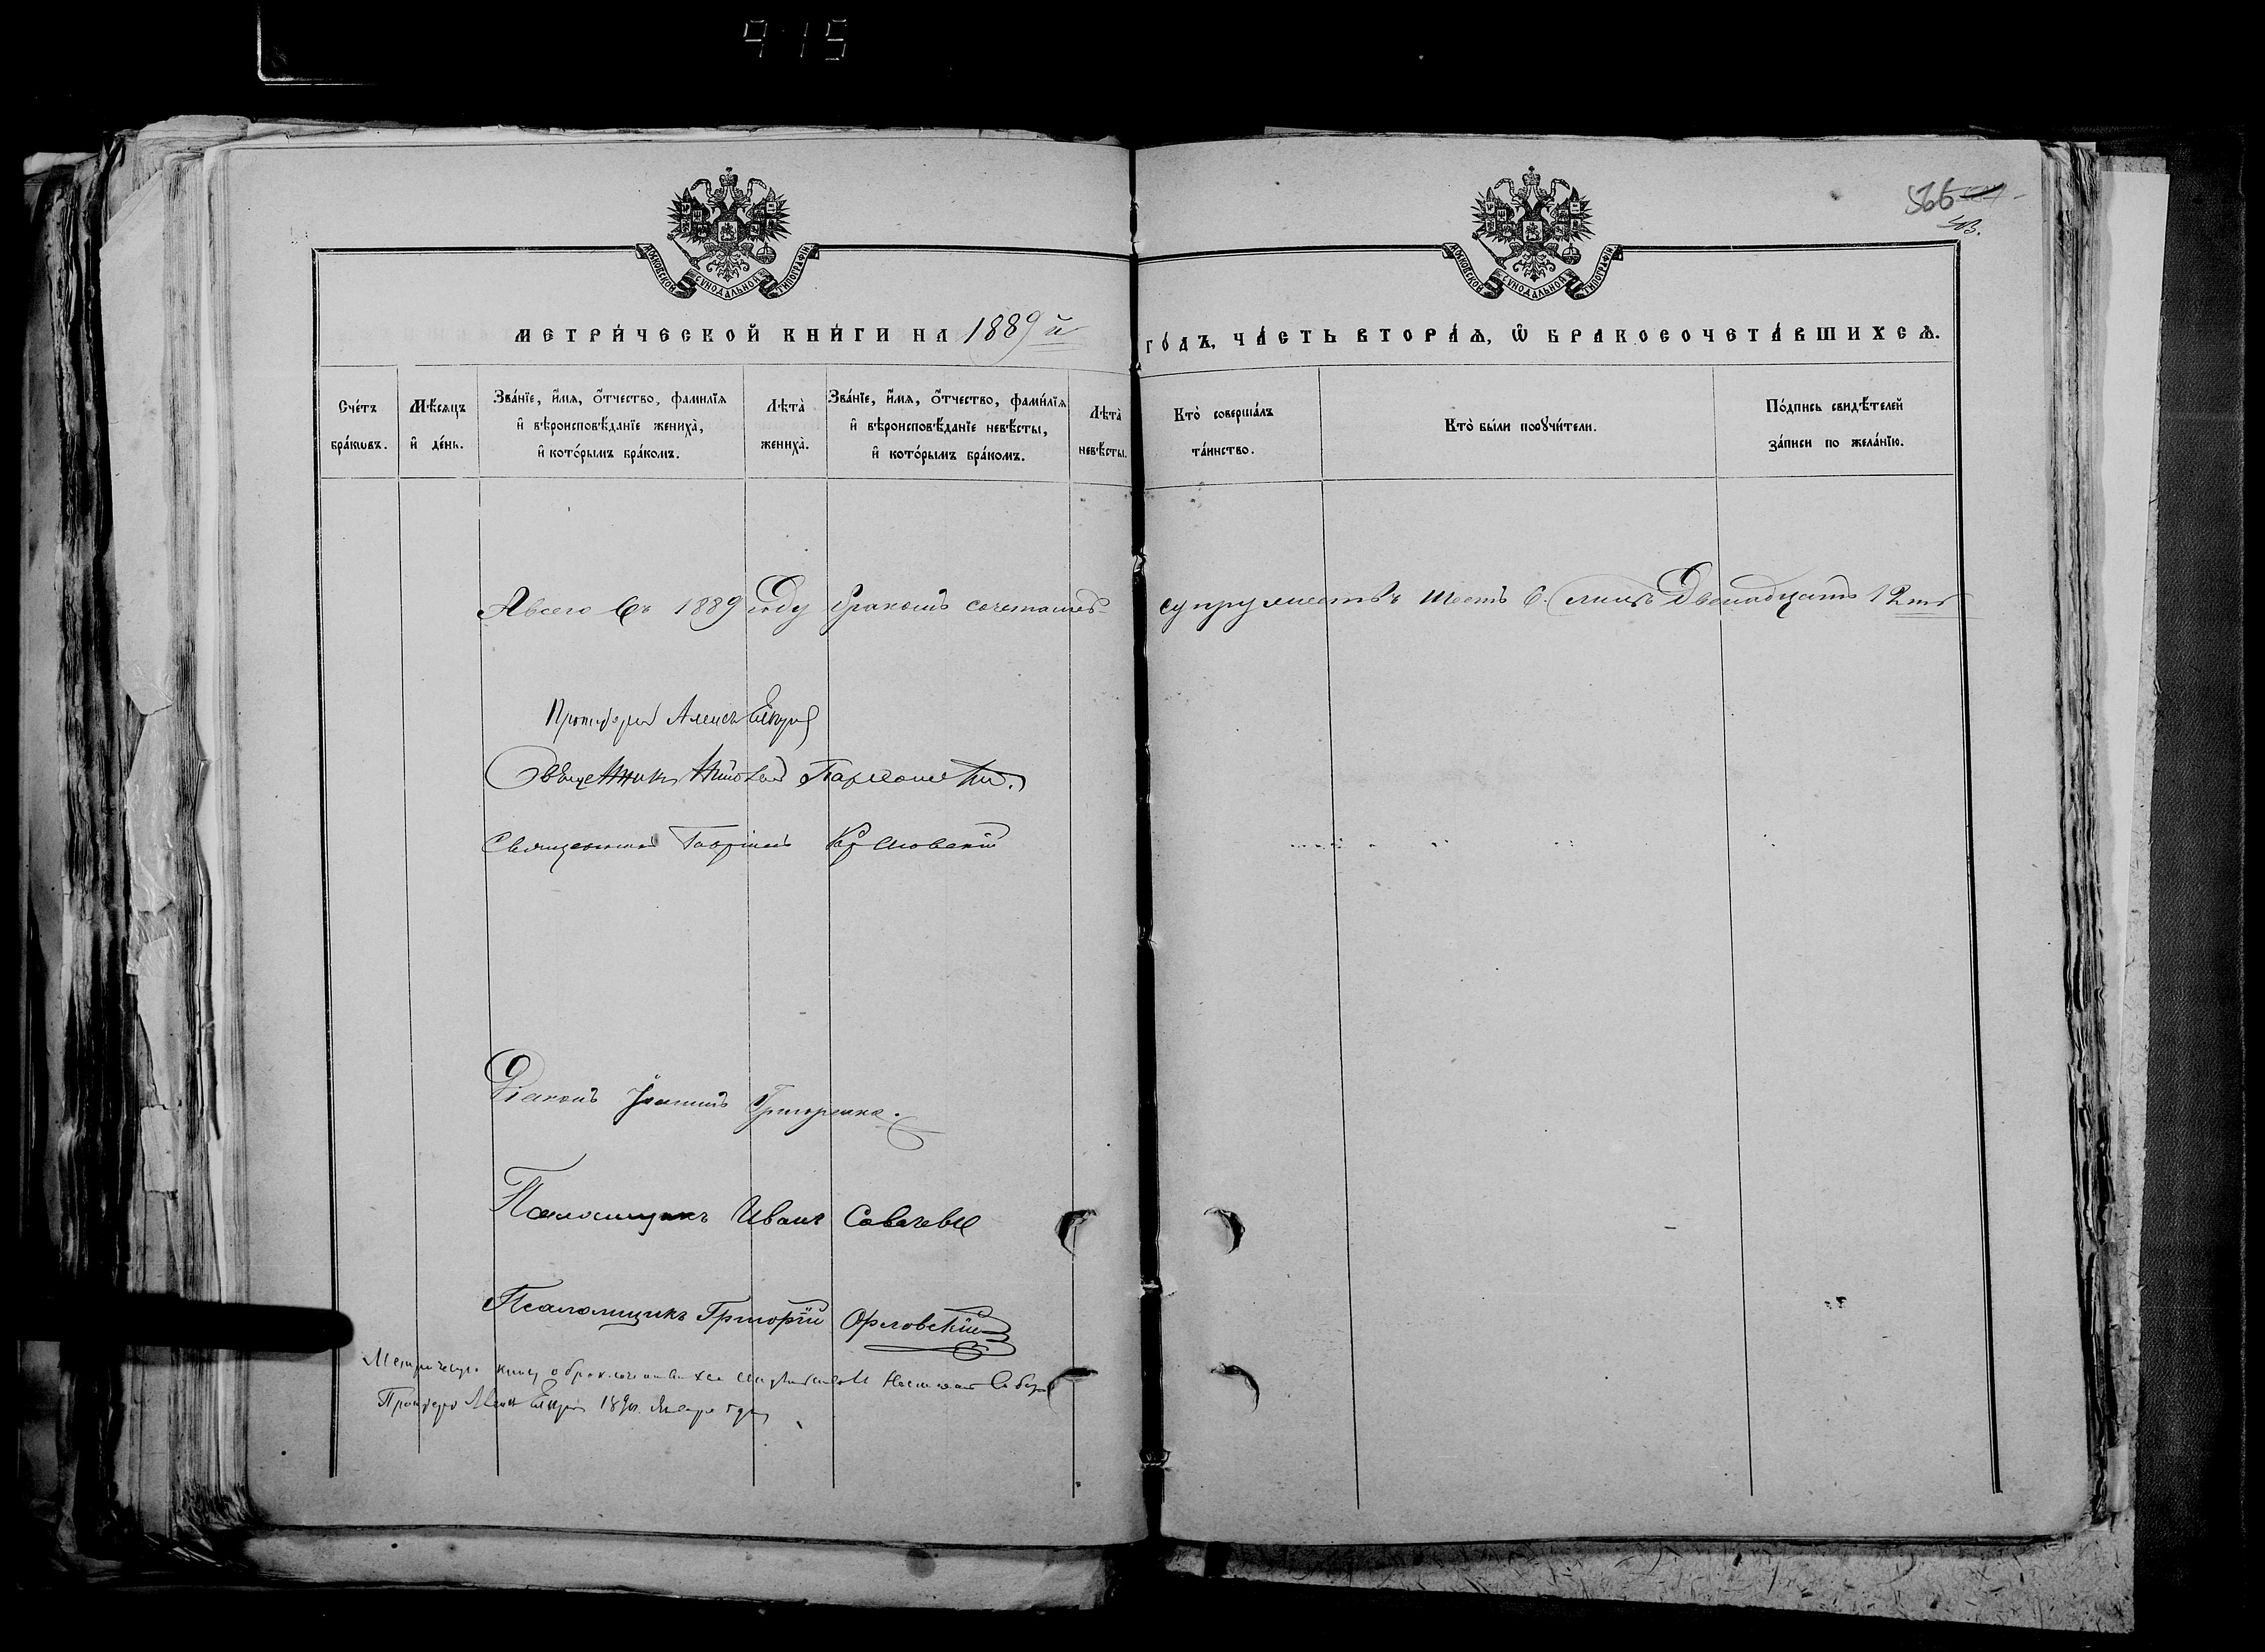 915
566
МОСКОВСКОЙ СѴНОДАЛЬНОЙ ТИПОГРАФІИ
МОСКОВСКОЙ СѴНОДАЛЬНОЙ ТИПОГРАФІИ
МЕТРИ́ЧЕСКОЙ КНИ́ГИ НА 1889й ГО́ДЪ, ЧА́СТЬ ВТОРА́Ѧ, Ѽ БРАКОСОЧЕТА́ВШИХСѦ.
Сче́тъ бра́кѡвъ.
Мѣ́сяцъ и҆ де́нь.
Зва́нїе, и҆́мя, ѻ҆́тчество, фамилїя и҆ вѣроисповѣ́данїе жениха̀, и҆ кото́рымъ бра́комъ.
Лѣта̀ жениха̀.
Зва́нїе, и҆́мя, ѻ҆́тчество, фами́лїя и҆ вѣроисповѣ́данїе невѣ́сты, и҆ кото́рымъ бра́комъ.
Лѣта̀ невѣ́сты.
Кто̀ соверша́лъ та́инство.
Кто̀ бы́ли порꙋчи́тели.
По́дпись свидѣ́телей за́писи по жела́нїю.
А всего въ 1889 году бракомъ сочетано супружествъ шесть 6. лицъ Двенадцать 12ть
Протоіерей Алексѣй
Священникъ Николай
Священникъ Гавріилъ
Діаконъ Іоаннъ Григоренко.
Псаломщикъ Иванъ Савичевъ
Псаломщикъ Григорій Орловскій
Метрическую книгу о бракосочетавшихся
Протоіерей Алексѣй 1890. Января